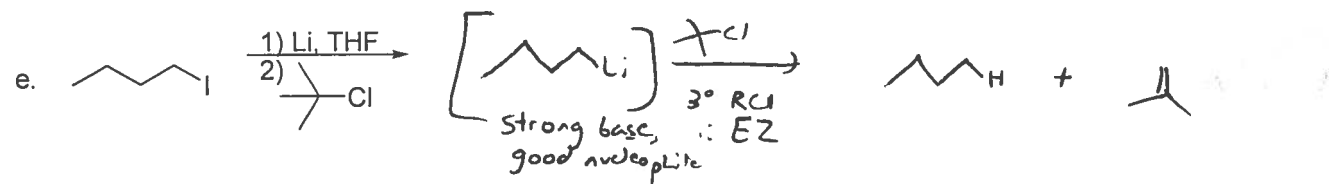 e.
I
1) Li, THF
2)
Cl
Li
Cl
3° RCl
Strong base, ∴ E2
good nucleophile
H
+